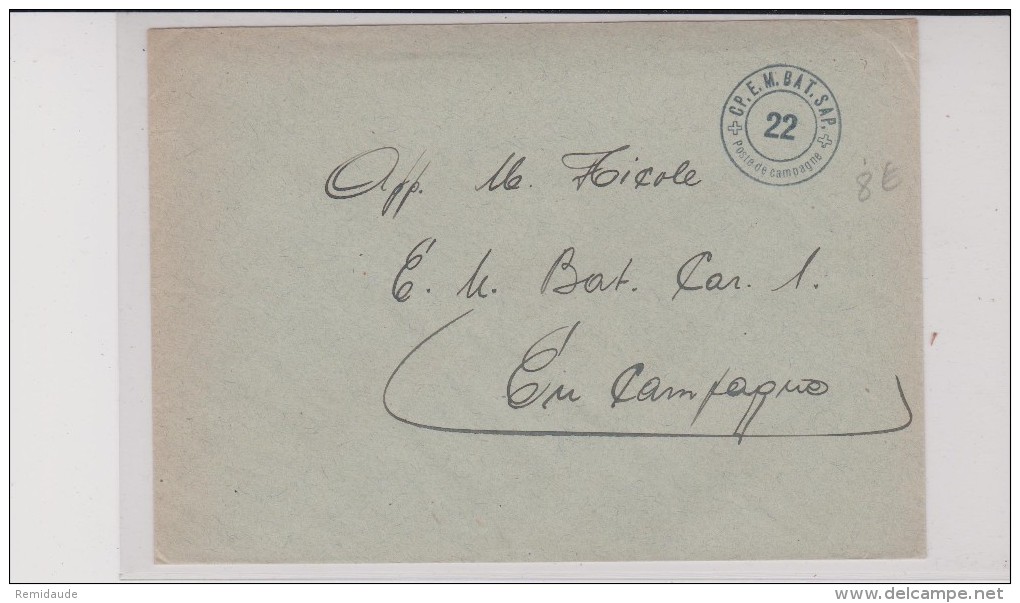 CP. E. M. BAT. SAP.
22
Poste de campagne
8 E
App. M. Nicole
E. M. Bat. Car. 1.
En Campagne
Remidaude
www.delcampe.net